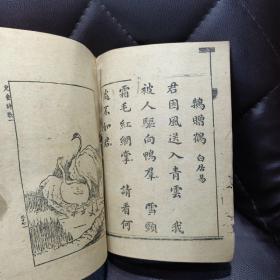 鵝贈鶴 白居易
君因風送入青雲 我
被人驅向鴨羣 雪頸
霜毛紅網掌 請看何
處不如君